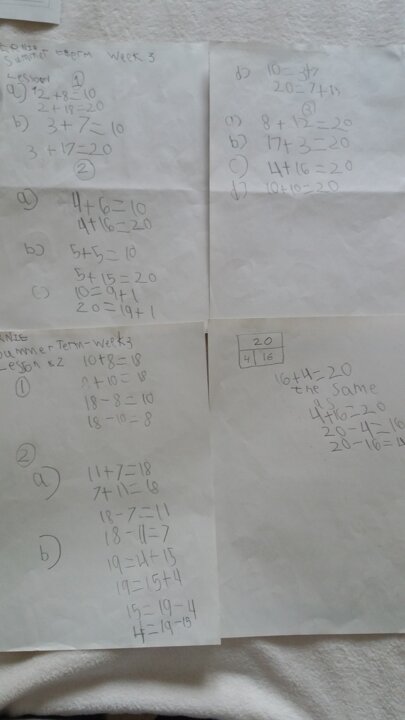 Summer term Week 3
Lesson 1
a) 2+8=10
2+18=20
b) 3+7=10
3+17=20
2
a) 4+6=10
4+16=20
b) 5+5=10
5+15=20
c) 10=9+1
20=19+1
d) 10=3+7
20=7+13
a) 8+12=20
b) 17+3=20
c) 14+16=20
d) 10+10=20
Summer Term-week3
Lesson 2
1
10+8=18
8+10=18
18-8=10
18-10=8
2
a) 11+7=18
7+11=18
18-7=11
18-11=7
b) 19=4+15
19=15+4
15=19-4
4=19-15
20
4 16
16+4=20
the same
as
4+16=20
20-4=16
20-16=4